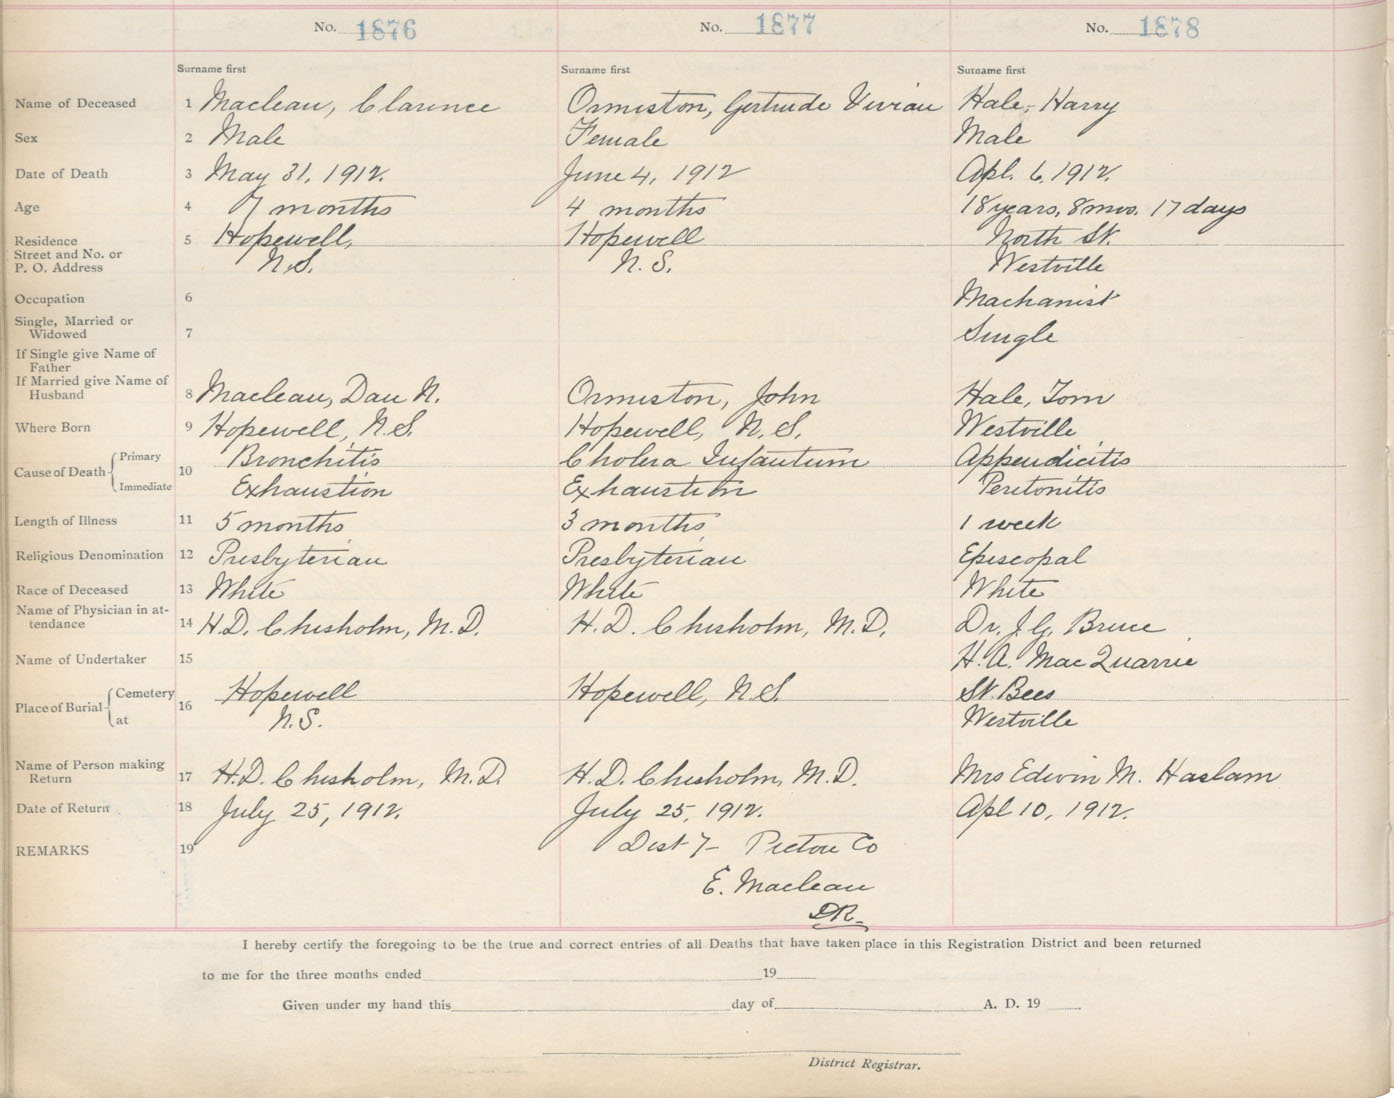 No. 1876 No. 1877 No. 1878
Surname first Surname first Surname first
Name of Deceased 1 Maclean, Clarence Ormiston, Gertrude Vivian Hale, Harry
Sex 2 Male Female Male
Date of Death 3 May 31, 1912. June 4, 1912 Apl. 6, 1912.
Age 4 7 months 4 months 18 years, 8 mos. 17 days
Residence 5 Hopewell, Hopewell North St.
Street and No. or
P. O. Address N.S. N. S. Westville
Occupation 6 Machanist
Single, Married or
Widowed 7 Single
If Single give Name of
Father
If Married give Name of
Husband 8 Maclean, Dan N. Ormiston, John Hale, Tom
Where Born 9 Hopewell, N.S. Hopewell, N. S. Westville
Cause of Death Primary 10 Bronchitis Cholera Infantum Appendicitis
Immediate Exhaustion Exhaustion Peritonitis
Length of Illness 11 5 months 3 months 1 week
Religious Denomination 12 Presbyterian Presbyterian Episcopal
Race of Deceased 13 White White White
Name of Physician in at-
tendance 14 H.D. Chisholm, M.D. H.D. Chisholm, M.D. Dr. J.G. Bruce
Name of Undertaker 15 H.A. MacQuarrie
Place of Burial Cemetery 16 Hopewell Hopewell, N.S. St. Bees
at N.S. Westville
Name of Person making
Return 17 H.D. Chisholm, M.D H.D. Chisholm, M.D. Mrs Edwin M. Haslam
Date of Return 18 July 25, 1912. July 25, 1912. Apl 10, 1912.
REMARKS 19 Dist 7- Pictou Co
E. Maclean
DR.
I hereby certify the foregoing to be the true and correct entries of all Deaths that have taken place in this Registration District and been returned
to me for the three months ended 19
Given under my hand this day of A. D. 19
District Registrar.